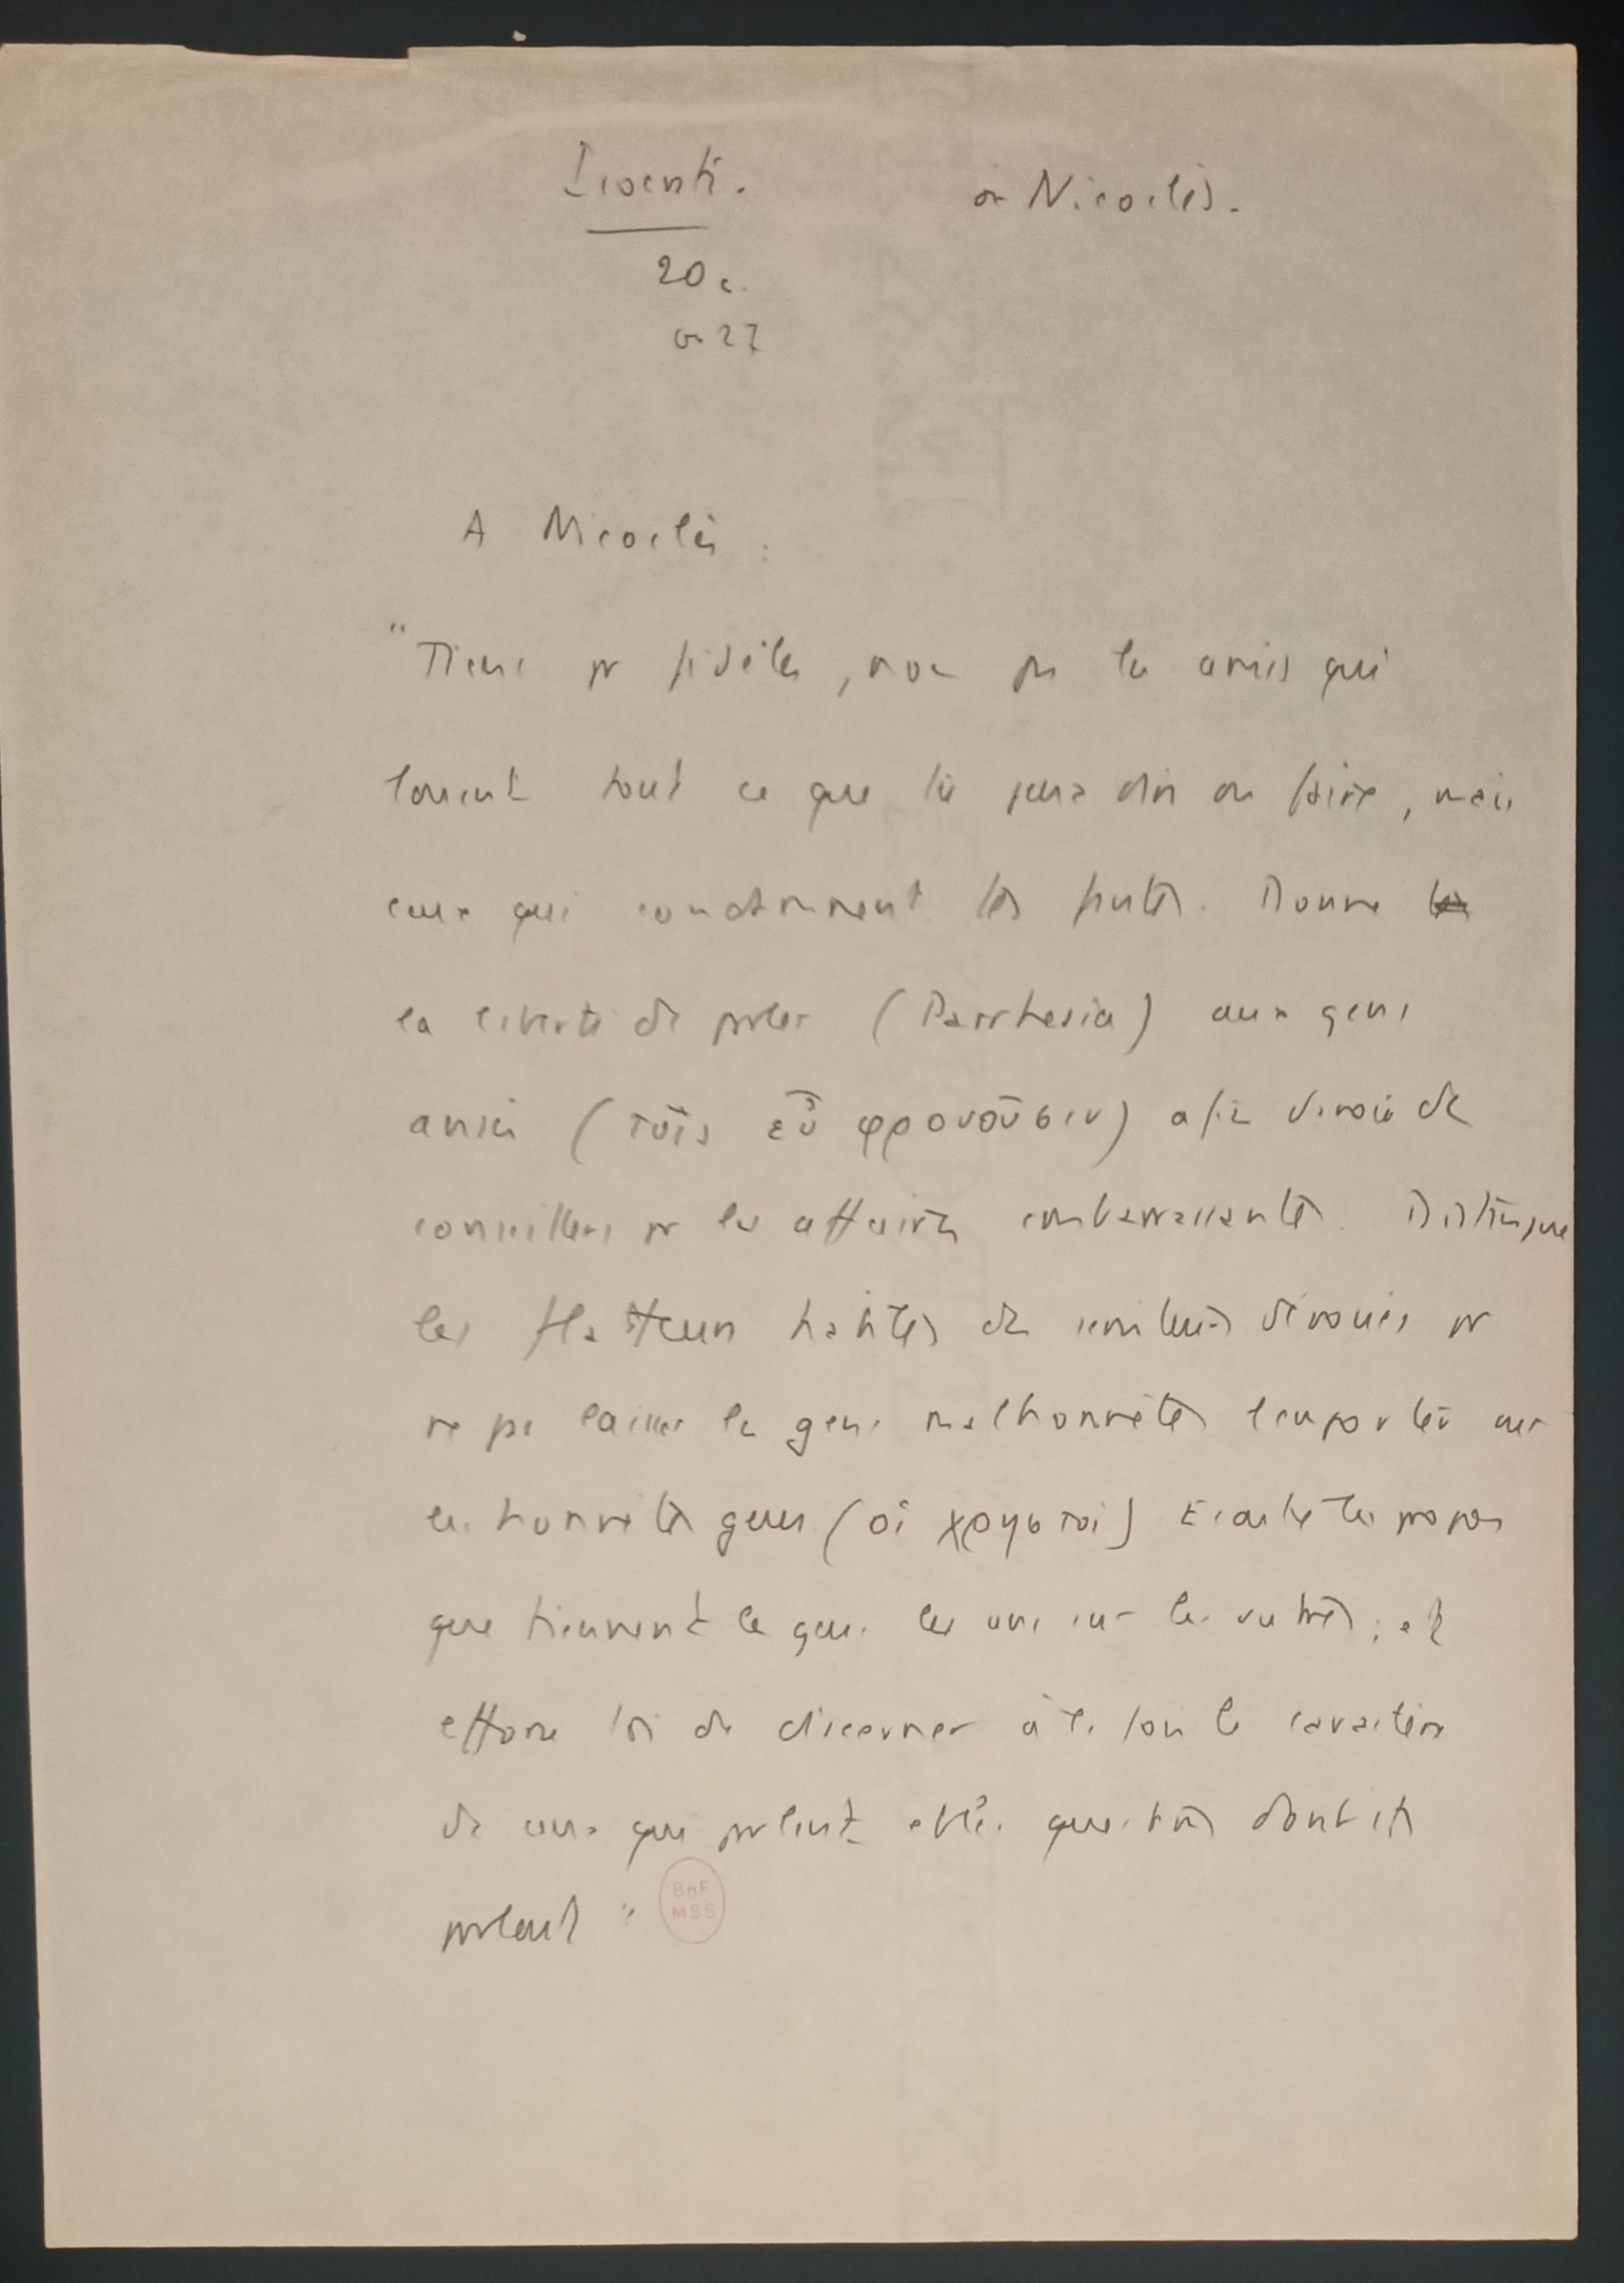 Isocrate. à Nicoclès.
20 c.
27
A Nicoclès :
"Tiens pr fidèles, non pas les amis qui
louent tout ce que tu peux dire ou faire, mais
ceux qui condamnent tes fautes. Donne
la liberté de parler (Parrhesia) aux gens
avisés (τοῖς εὖ φρονοῦσιν) afin d'avoir de
conseillers pr les affaires embarrassantes. Distingue
les flatteurs habiles de serviteurs dévoués pr
ne pas laisser les gens malhonnêtes l'emporter sur
les honnêtes gens (οἱ χρηστοί) Ecoute les propos
que tiennent les gens les uns sur les autres ; et
efforce toi de discerner à la fois le caractère
de ceux qui parlent et les questions dont ils
parlent "
BnF
MSS